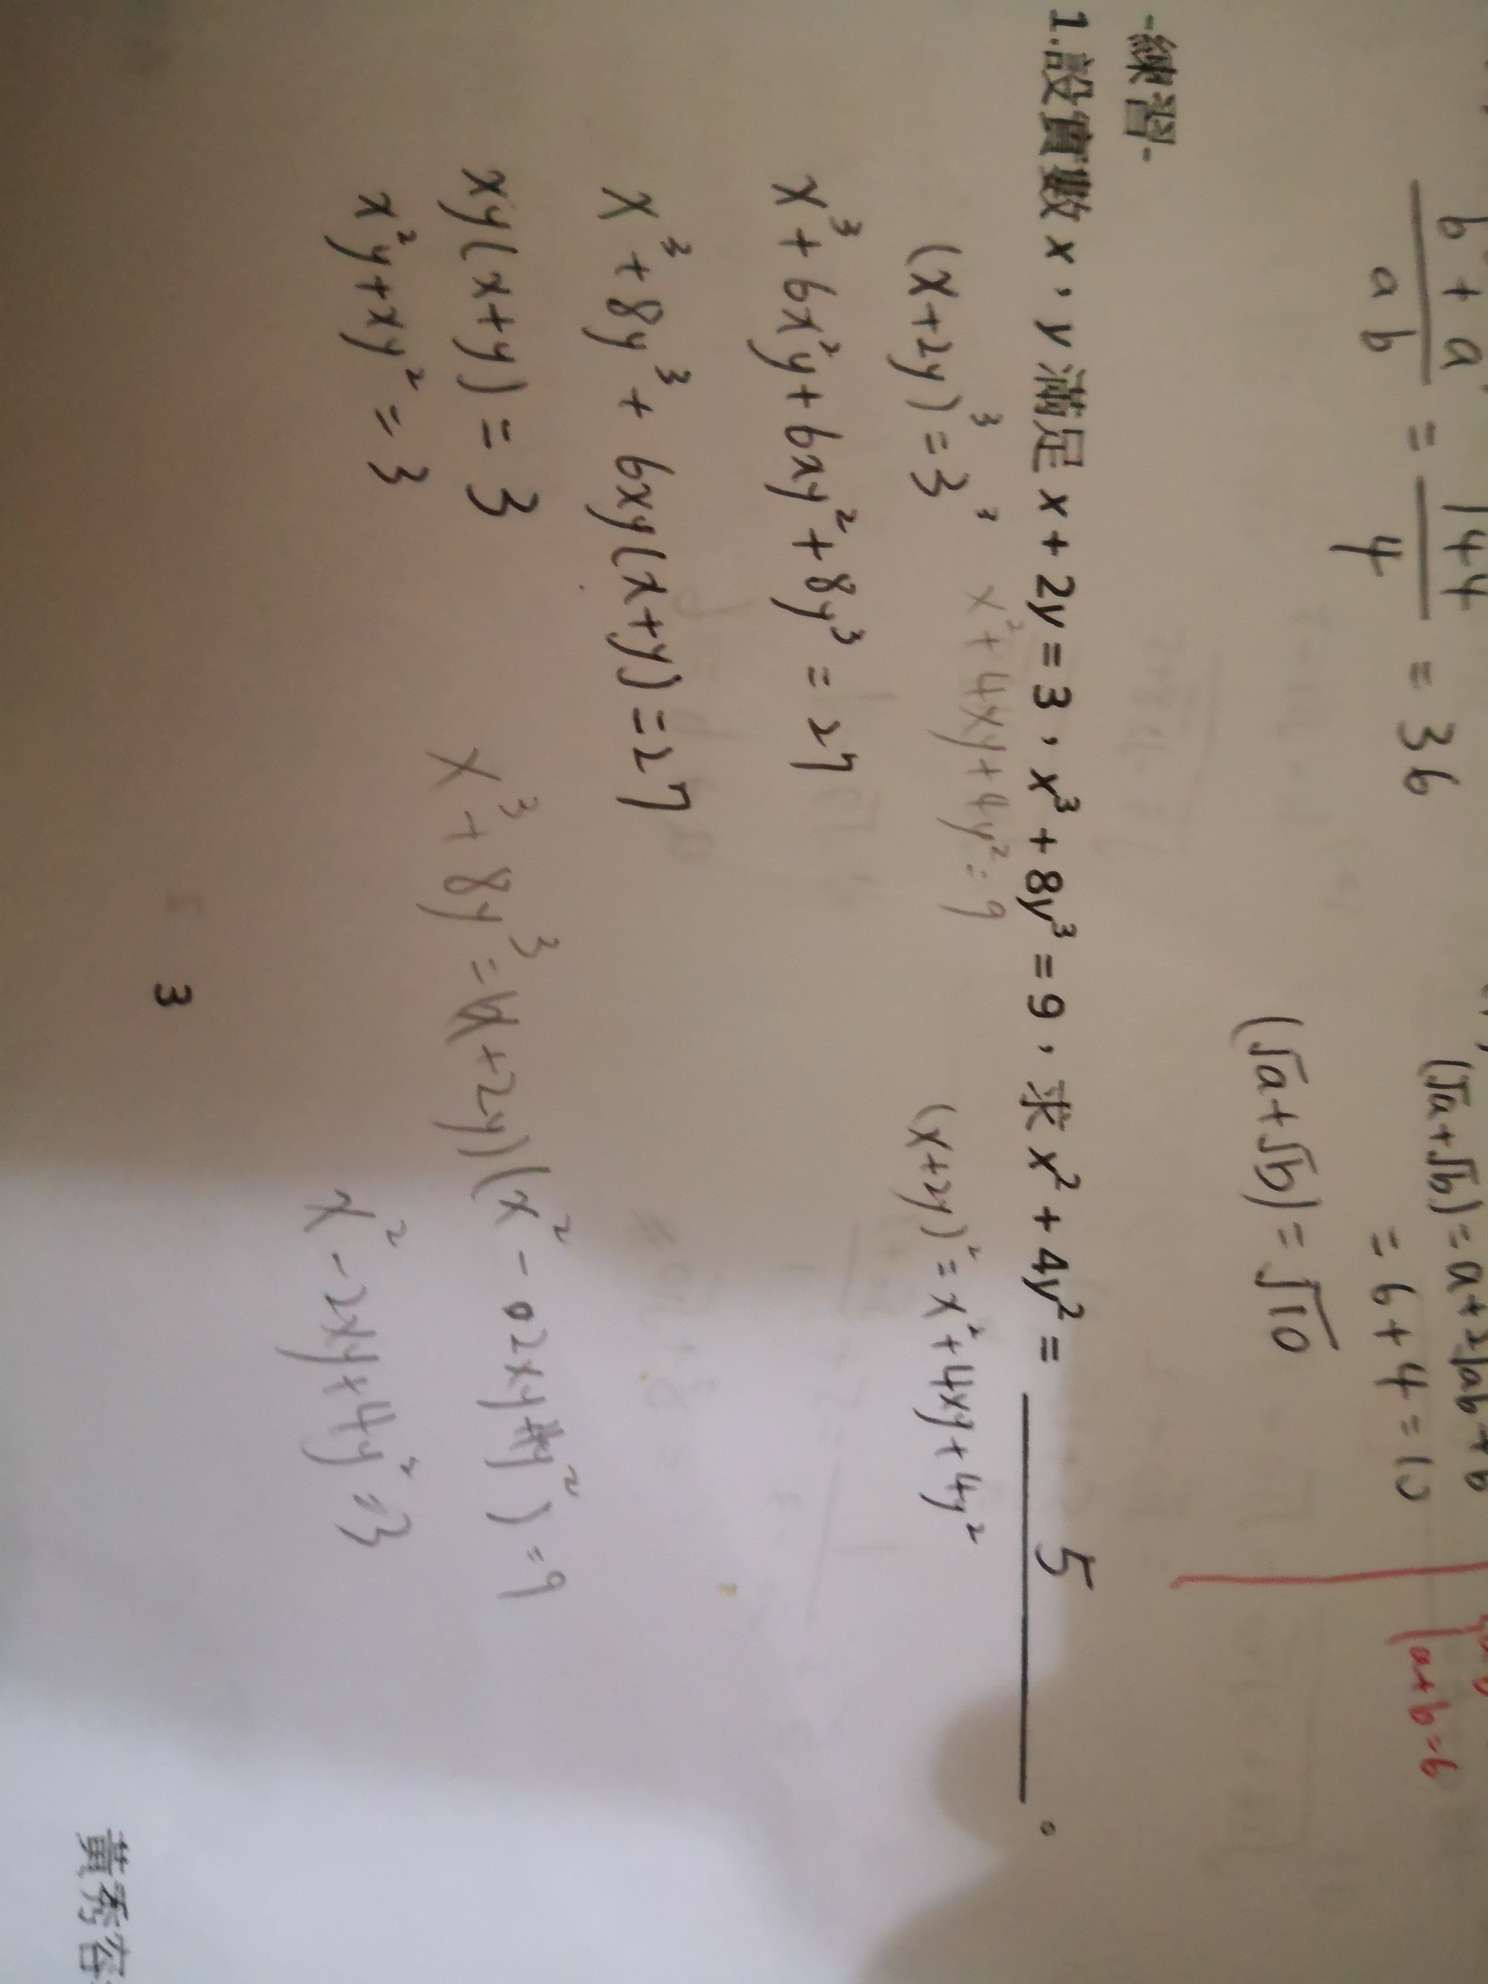 b + a / ab = 144 / 4 = 36
(√a+√b)=a+2√ab+b
= 6+4=10
(√a+√b)=√10
a+b=6
-練習-
1.設實數 x，y 滿足 x + 2y = 3，x³ + 8y³ = 9，求 x² + 4y² = 5。
(x+2y)³=3³
x²+4xy+4y²=9
(x+2y)²=x²+4xy+4y²
x³+6x²y+6xy²+8y³=27
x³+8y³+6xy(x+y)=27
xy(x+y)=3
x²y+xy²=3
x³+8y³=(x+2y)(x²-2xy+4y²)=9
x²-2xy+4y²=3
3
黃秀容